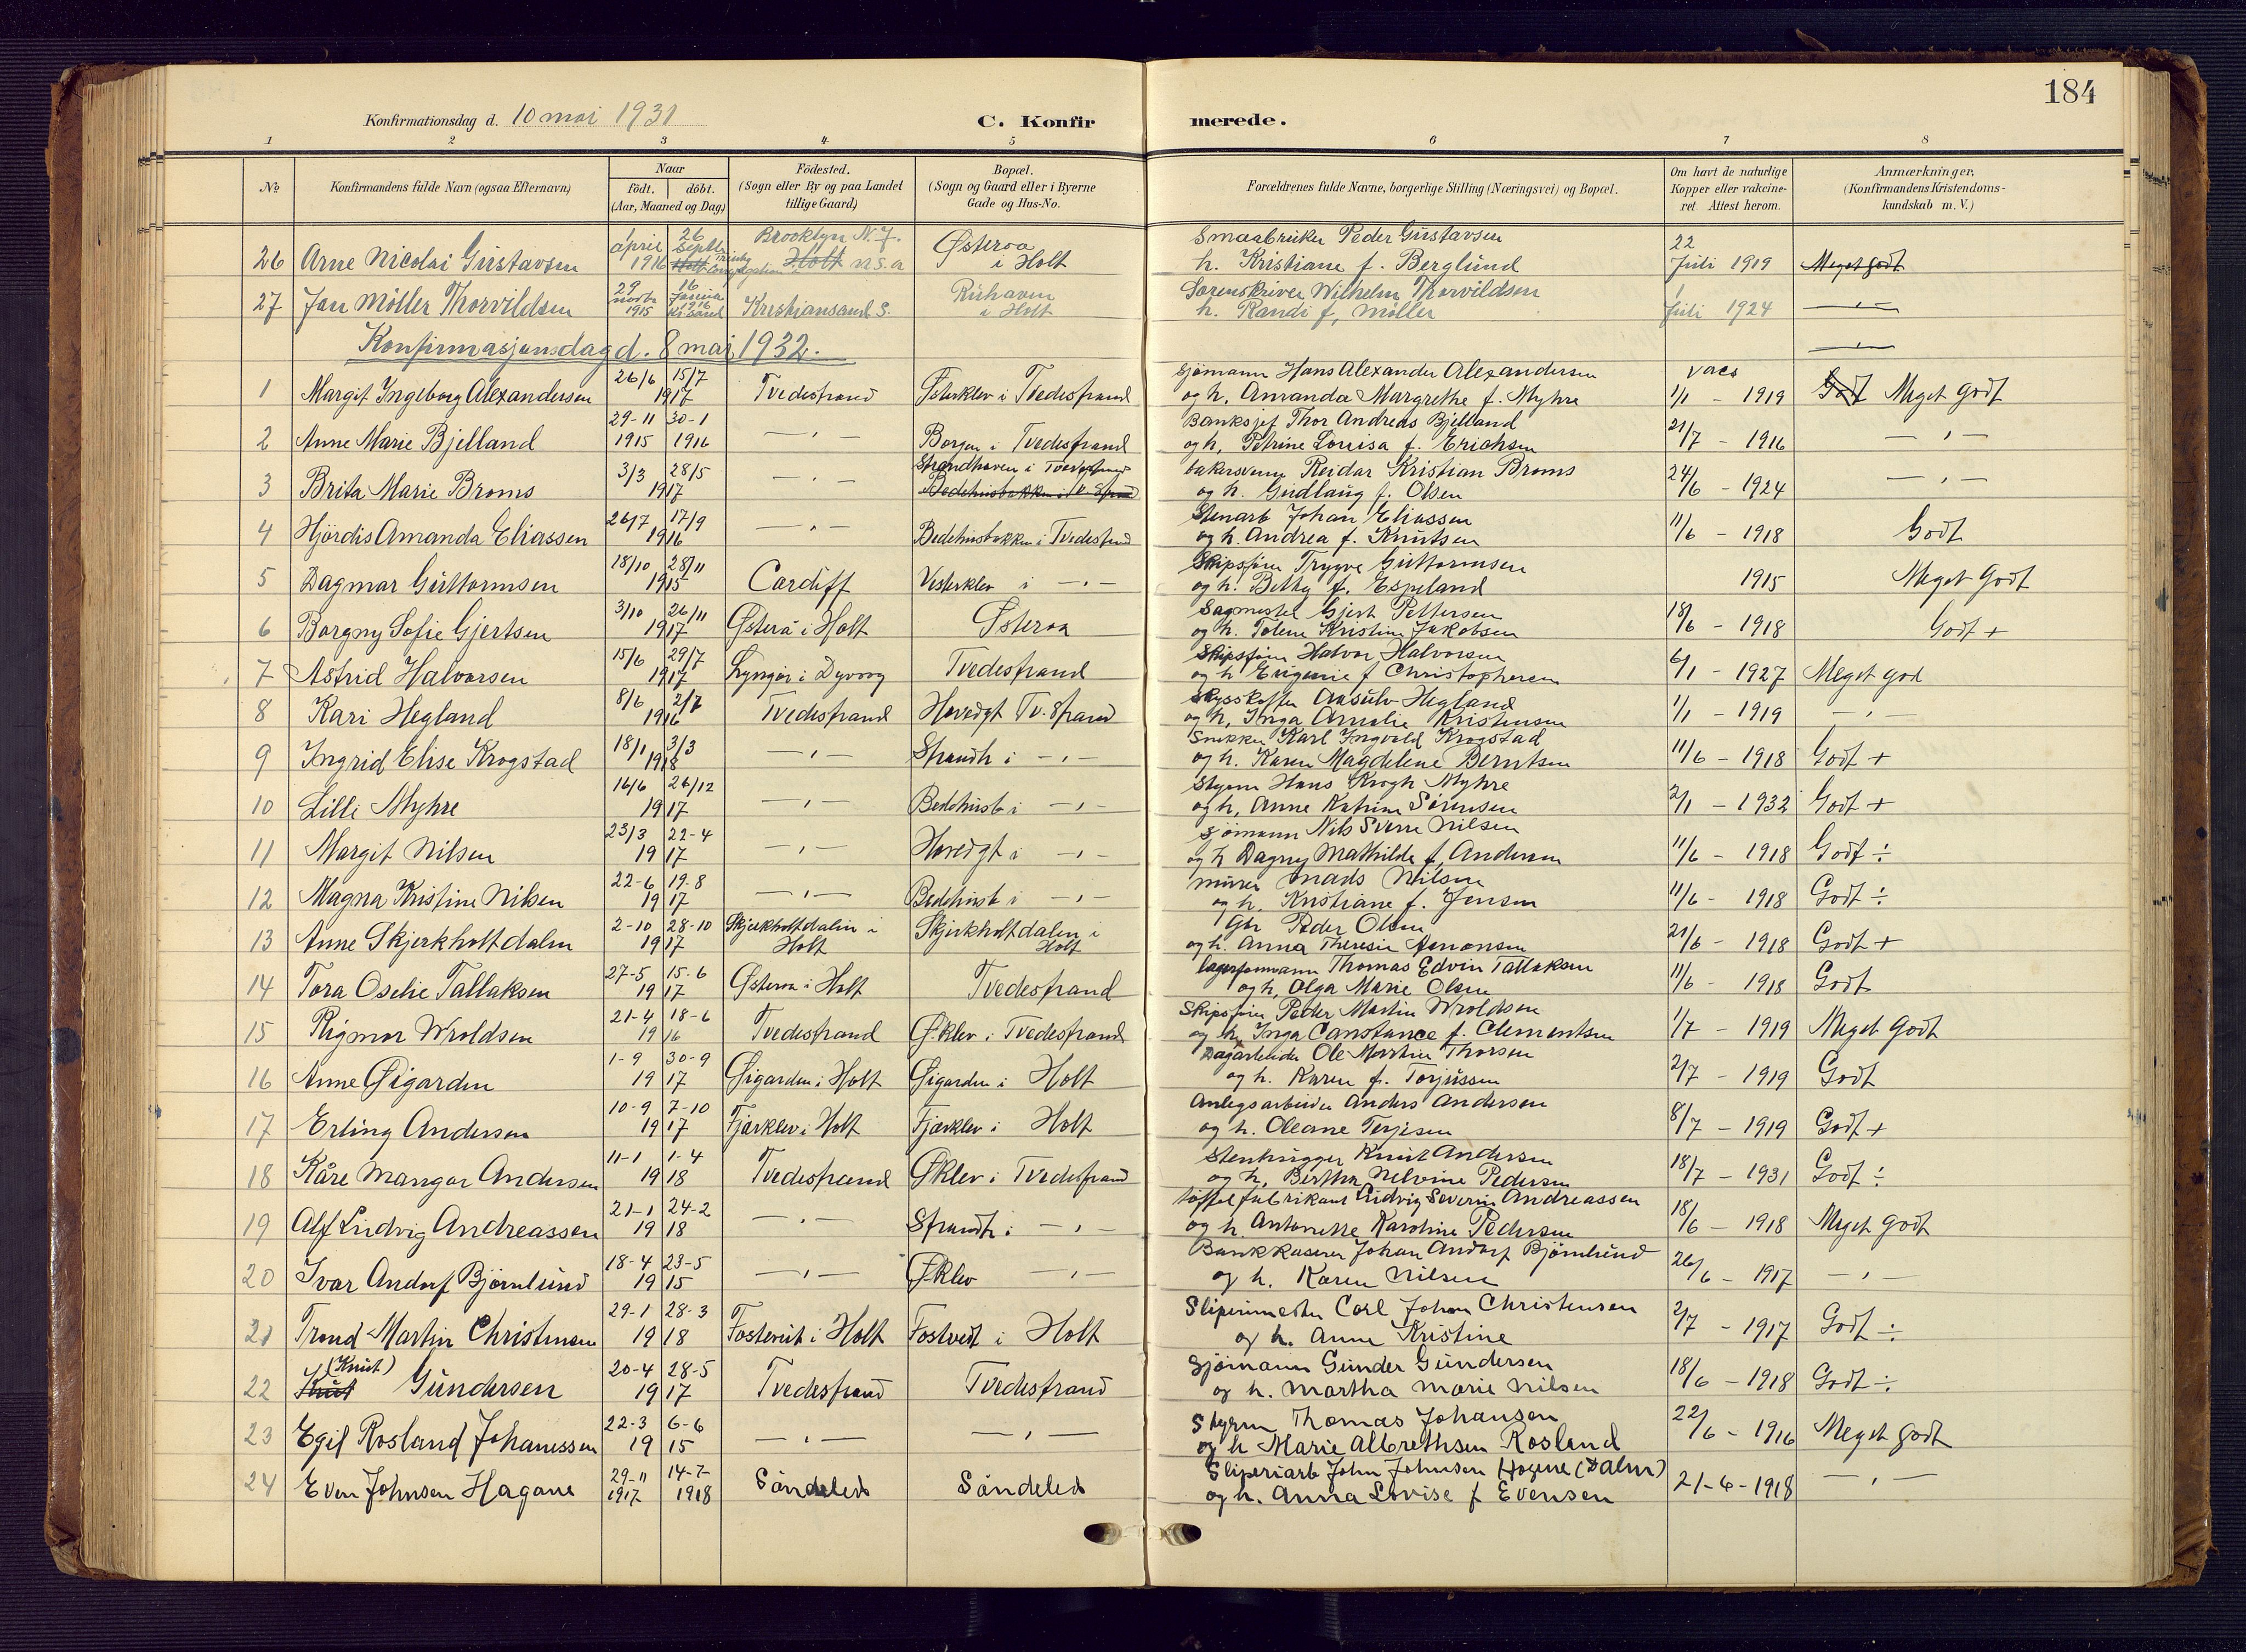 184
Konfirmationsdag d. 10 mai 1931
C. Konfirmerede.
1 2 3 4 5 6 7 8
No
Konfirmandens fulde Navn (ogsaa Efternavn)
Naar
födt. döbt.
(Aar, Maaned og Dag)
Födested.
(Sogn eller By og paa Landet
tillige Gaard)
Bopæl.
(Sogn og Gaard eller i Byerne
Gade og Hus-No.
Forældrenes fulde Navne, borgerlige Stilling (Næringsvei) og Bopæl.
Om havt de naturlige
Kopper eller vakcine-
ret Attest herom.
Anmærkninger,
(Konfirmandens Kristendoms-
kundskab m. V.)
26 Arne Nicolai Gustavsen 1 april 1916 26 Septb Holt Trinity Congregation Brooklyn N.J. Holt U.S.A Østeraa i Holt
Smaabruker Peder Gustavsen
h. Kristiane f. Berglund 22 Juli 1919 Meget godt
27 Jan Möller Thorvildsen 29 novbr 1915 16 Januar 1916 Kr.sand Kristiansand S. i Holt
Sorenskriver Wilhelm Thorvildsen
h. Randi f. Möller 1 Juli 1924 — " —
Konfirmasjonsdag d. 8 mai 1932. — " —
1 Margit Ingeborg Alexandersen 26/6 15/7 1917 Tvedestrand Østerklev i Tvedestrand
Sjømann Hans Alexander Alexandersen vacc
og h. Amanda Margrethe f. Myhre 1/1 - 1919 Godt Meget godt
2 Anne Marie Bjelland 29-11 1915 30-1 1916 — " — Borgen i Tvedestrand
Banksjef Thor Andreas Bjelland
og h. Petrine Lovisa f. Erichsen 21/7 - 1916 — " —
3 Brita Marie Broms 3/3 28/5 1917 — " — Strandhaven i Tvedestrand
Bedehusbakken i Tv. Strand
bakersvenn Reidar Kristian Broms
og h. Gudlaug f. Olsen 24/6 - 1924 — " —
4 Hjördis Amanda Eliassen 26/7 17/9 1916 — " — Bedehusbakken i Tvedestrand
Stenarb Johan Eliassen
og h. Andrea f. Knutsen 11/6 - 1918 Godt
5 Dagmar Guttormsen 18/10 28/11 1915 Cardiff Vesterklev i — " —
Skipsfører Trygve Guttormsen
og h. Betty f. Espeland 1915 Meget Godt
6 Borgny Sofie Gjertsen 3/10 26/11 1917 Østerå i Holt Østeraa
Sagmester Gjert Pettersen
og h. Tolene Kristine Jakobsen 18/6 - 1918 Godt +
7 Astrid Halvorsen 15/6 29/7 1917 Lyngör i Dyvaag Tvedestrand
Skipsfører Halvor Halvorsen
og h Eugenie f Christophersen 6/1 - 1927 Meget god
8 Kari Hegland 8/6 2/7 1916 Tvedestrand Hovedgt Tv. Strand
Skysskaffer Aasulv Hegland
og h. Inga Amalie Kristensen 1/1 - 1919 — " —
9 Ingrid Elise Krogstad 18/1 3/3 1918 — " — Strandh i — " —
Snekker Karl Ingvald Krogstad
og h. Karen Magdelene Berntsen 11/6 - 1918 Godt +
10 Lilli Myhre 16/6 26/12 1917 — " — Bedehusb i — " —
Styrm Hans Krogh Myhre
og h. Anne Katrine Sörensen 2/1 - 1932 Godt +
11 Margit Nilsen 23/3 22-4 1917 — " — Hovedgt i — " —
Sjömann Nils Sverre Nilsen
og h Dagny Mathilde f. Andersen 11/6 - 1918 Godt ÷
12 Magna Kristine Nilsen 22-6 19-8 1917 — " — Bedehusb i — " —
murer Mads Nilsen
og h. Kristiane f. Jensen 11/6 - 1918 Godt ÷
13 Anne Skjerkholtdalen 2-10 28-10 1917 Skjerkholtdalen i Holt Skjerkholtdalen i Holt
Gbr Peder Olsen
og h. Anna Theresie Aanonsen 21/6 - 1918 Godt +
14 Tora Oselie Tallaksen 27-5 15-6 1917 Østeraa i Holt Tvedestrand
lagerformann Thomas Edvin Tallaksen
og h. Olga Marie Olsen 11/6 - 1918 Godt
15 Rigmor Wroldsen 21-4 18-6 1916 Tvedestrand Ø.klev i Tvedestrand
Skipsfører Peder Martin Wroldsen
og h. Inga Constance f. Clementsen 1/7 - 1919 Meget Godt
16 Anne Øigarden 1-9 30-9 1917 Øigarden i Holt Øigarden i Holt
Dagarbeider Ole Martin Thorsen
og h. Karen f. Torjussen 2/7 - 1919 Godt
17 Erling Andersen 10-9 7-10 1917 Fjærklev i Holt Fjærklev i Holt
Anlegsarbeider Anders Andersen
og h. Oleane Terjesen 8/7 - 1919 Godt +
18 Kåre Mangor Andersen 11-1 1-4 1918 Tvedestrand Ø.klev i Tvedestrand
Stenhugger Knut Andersen
og h. Bertha Nelvine Pedersen 18/7 - 1931 Godt ÷
19 Alf Ludvig Andreassen 21-1 24-2 1918 — " — Strandh i — " —
töffelfabrikant Ludvig Severin Andreassen
og h. Antonette Karoline Pedersen 18/6 - 1918 Meget Godt
20 Ivar Andorf Björnlund 18-4 23-5 1915 — " — Ø.klev — " —
Bankkaserer Johan Andorf Björnlund
og h. Karen Nilsen 26/6 - 1917 — " —
21 Trond Martin Christensen 29-1 28-3 1918 Fosterveit i Holt Fostvedt i Holt
Sliperimester Carl Johan Christensen
og h. Anne Kristine 2/7 - 1917 Godt ÷
22 (Knut) Knut Gundersen 20-4 28-5 1917 Tvedestrand Tvedestrand
Sjömann Gunder Gundersen
og h. Martha Marie Nilsen 18/6 - 1918 Godt ÷
23 Egil Rosland Johanssen 22-3 6-6 1915 — " — — " —
Styrm Thomas Johansen
og h Marie Albrethsen Rosland 22/6 - 1916 Meget godt
24 Even Johnsen Hagane 29-11 1917 14-7- 1918 Söndeled Söndeled
Sliperiarb John Johnsen Hagene (Dalen)
og h. Anna Lovise f Evensen 21-6-1918 — " —